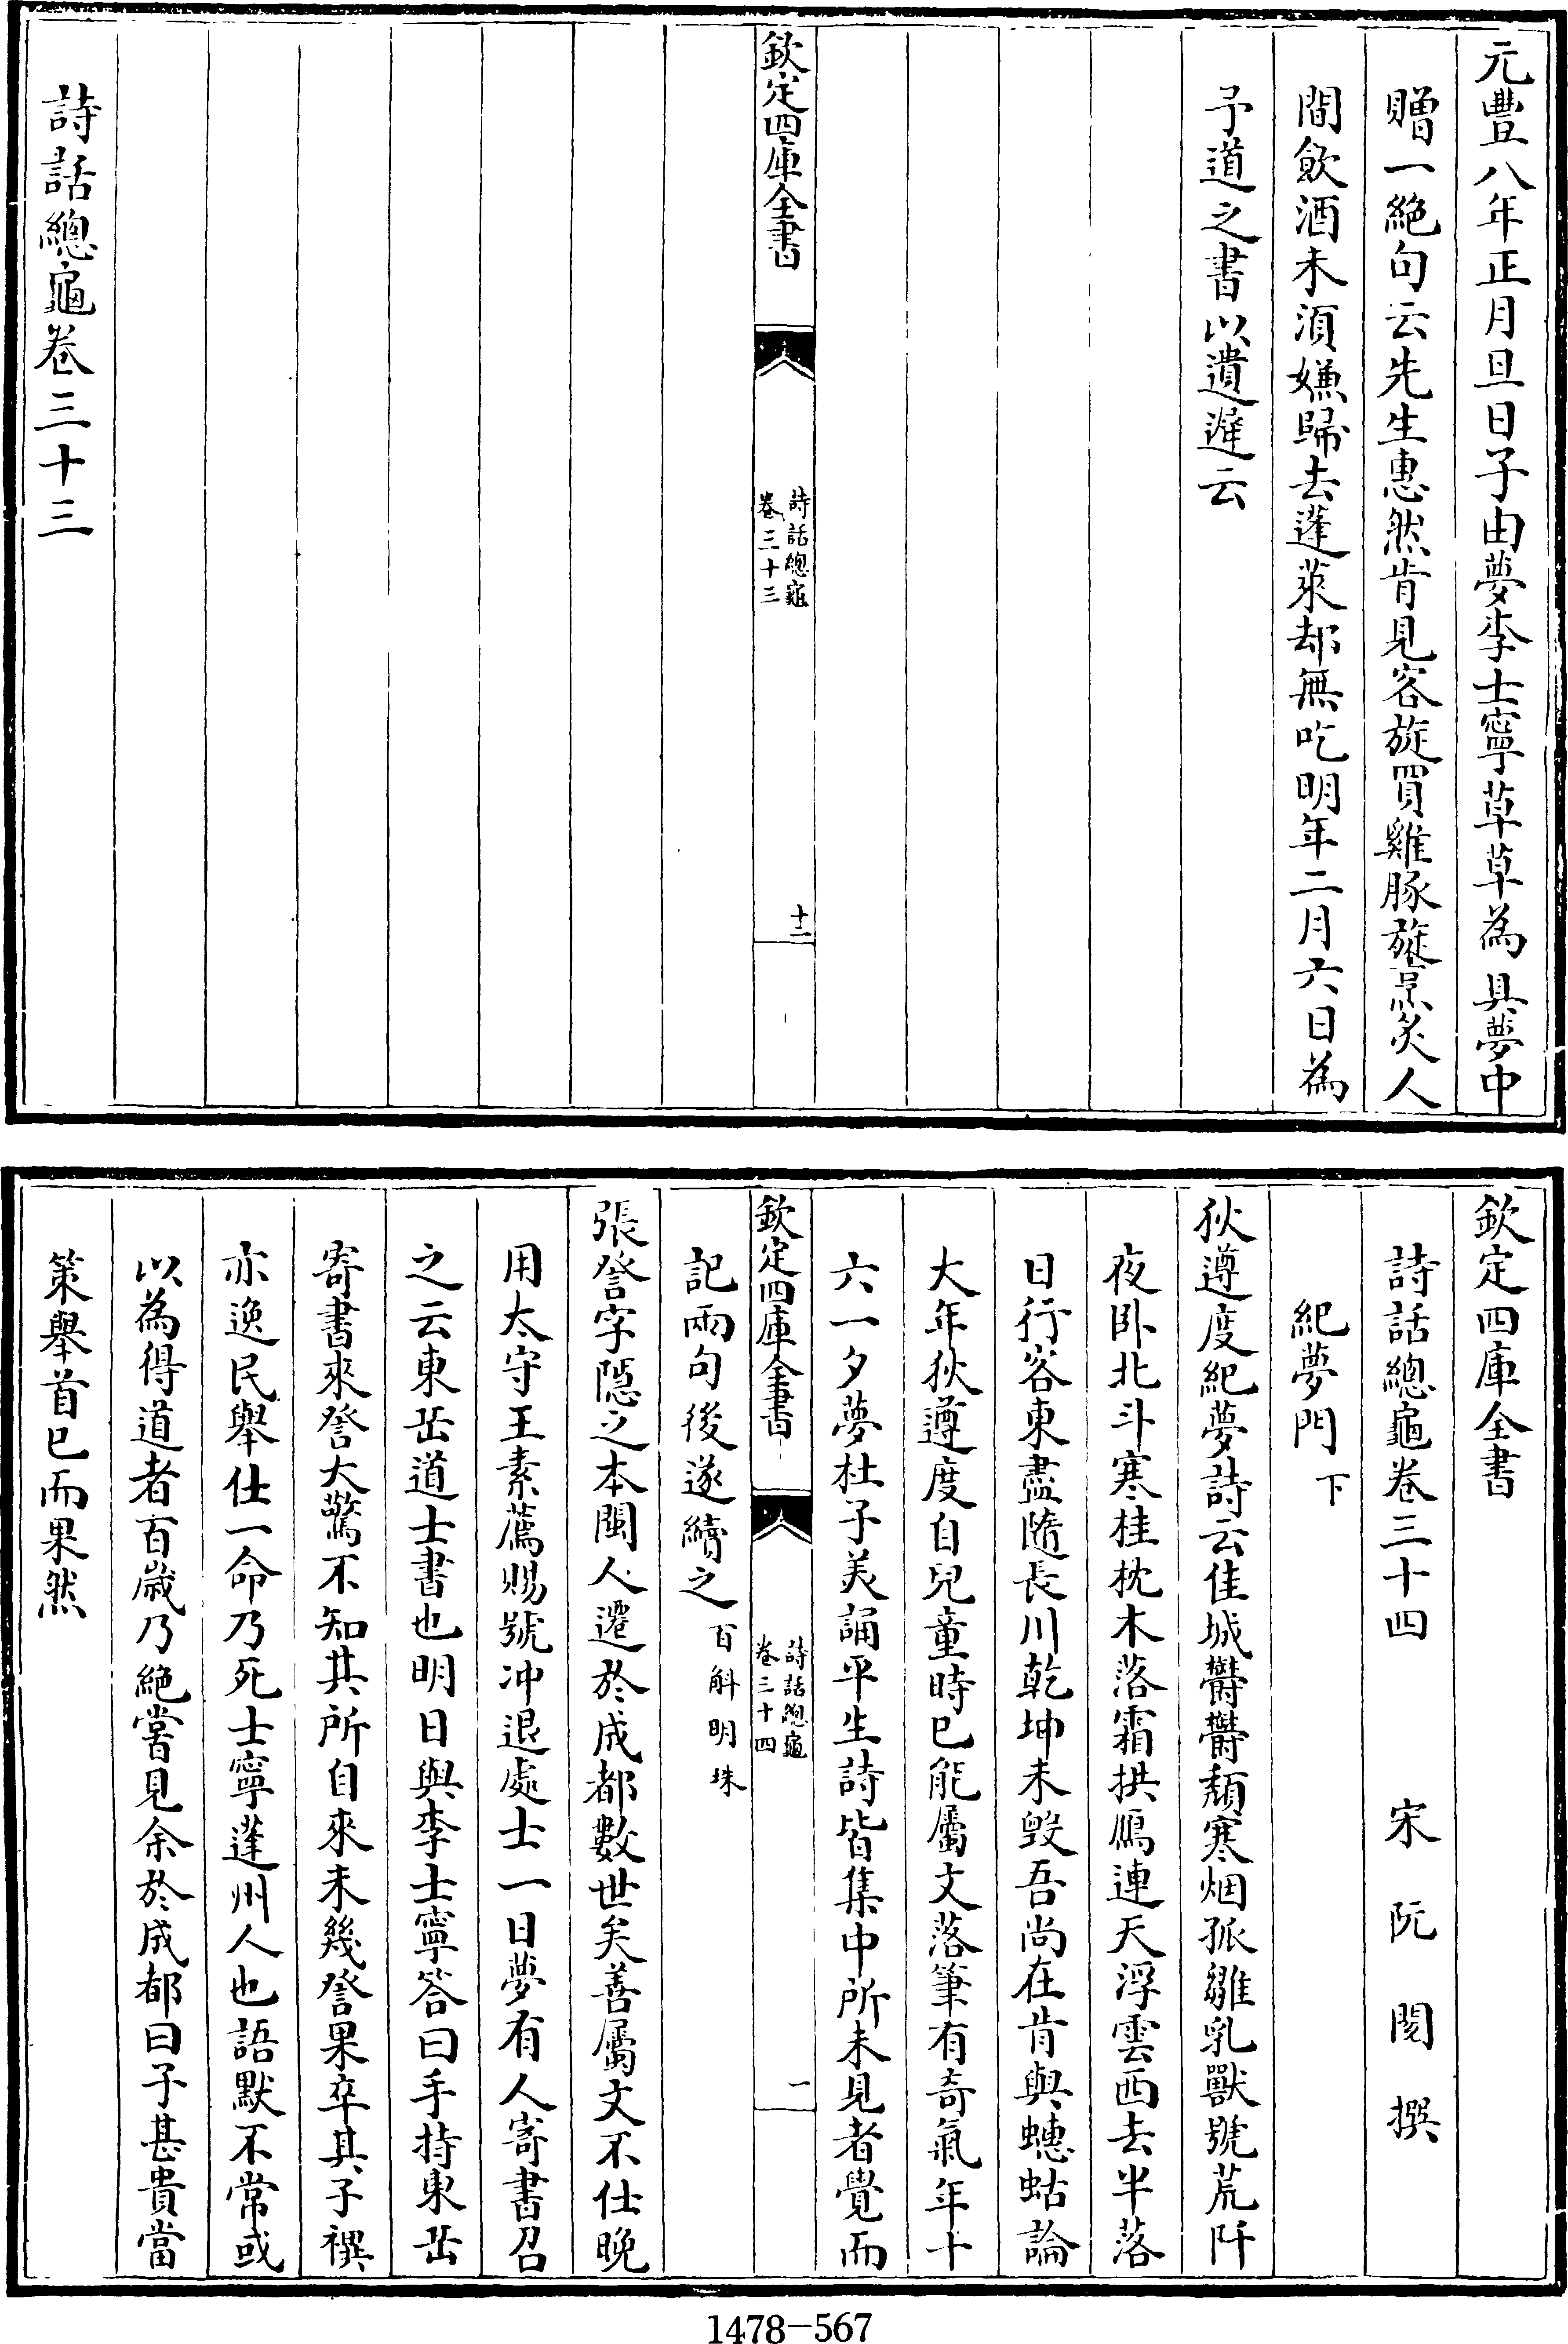 元豐八年正月旦日子由夢李士寧草草為具夢中
贈一絶句云先生惠然肯見客旋買雞豚旋烹炙人
間飲酒未須嫌歸去蓬萊却無吃明年二月六日為
予道之書以遺遲云
欽定四庫全書
詩話總龜
卷三十三
十二
詩話總龜卷三十三
欽定四庫全書
詩話總龜卷三十四
宋 阮閱 撰
紀夢門下
狄遵度紀夢詩云佳城鬱鬱頽寒烟孤雛乳獸號荒阡
夜卧北斗寒桂枕木落霜拱鴈連天浮雲西去半落
日行客東盡隨長川乾坤未毁吾尚在肯與蟪蛄論
大年狄遵度自兒童時已能屬文落筆有奇氣年十
六一夕夢杜子美誦平生詩皆集中所未見者覺而
欽定四庫全書
詩話總龜
卷三十四
一
記兩句後遂續之百斛明珠
張詧字隱之本閩人遷於成都數世矣善屬文不仕晚
用太守王素薦賜號冲退處士一日夢有人寄書召
之云東岳道士書也明日與李士寧答曰手持東岳
寄書來詧大驚不知其所自來未幾詧果卒其子禩
亦逸民舉仕一命乃死士寧蓬州人也語默不常或
以為得道者百歲乃絶嘗見余於成都曰子甚貴當
策舉首已而果然
1478-567